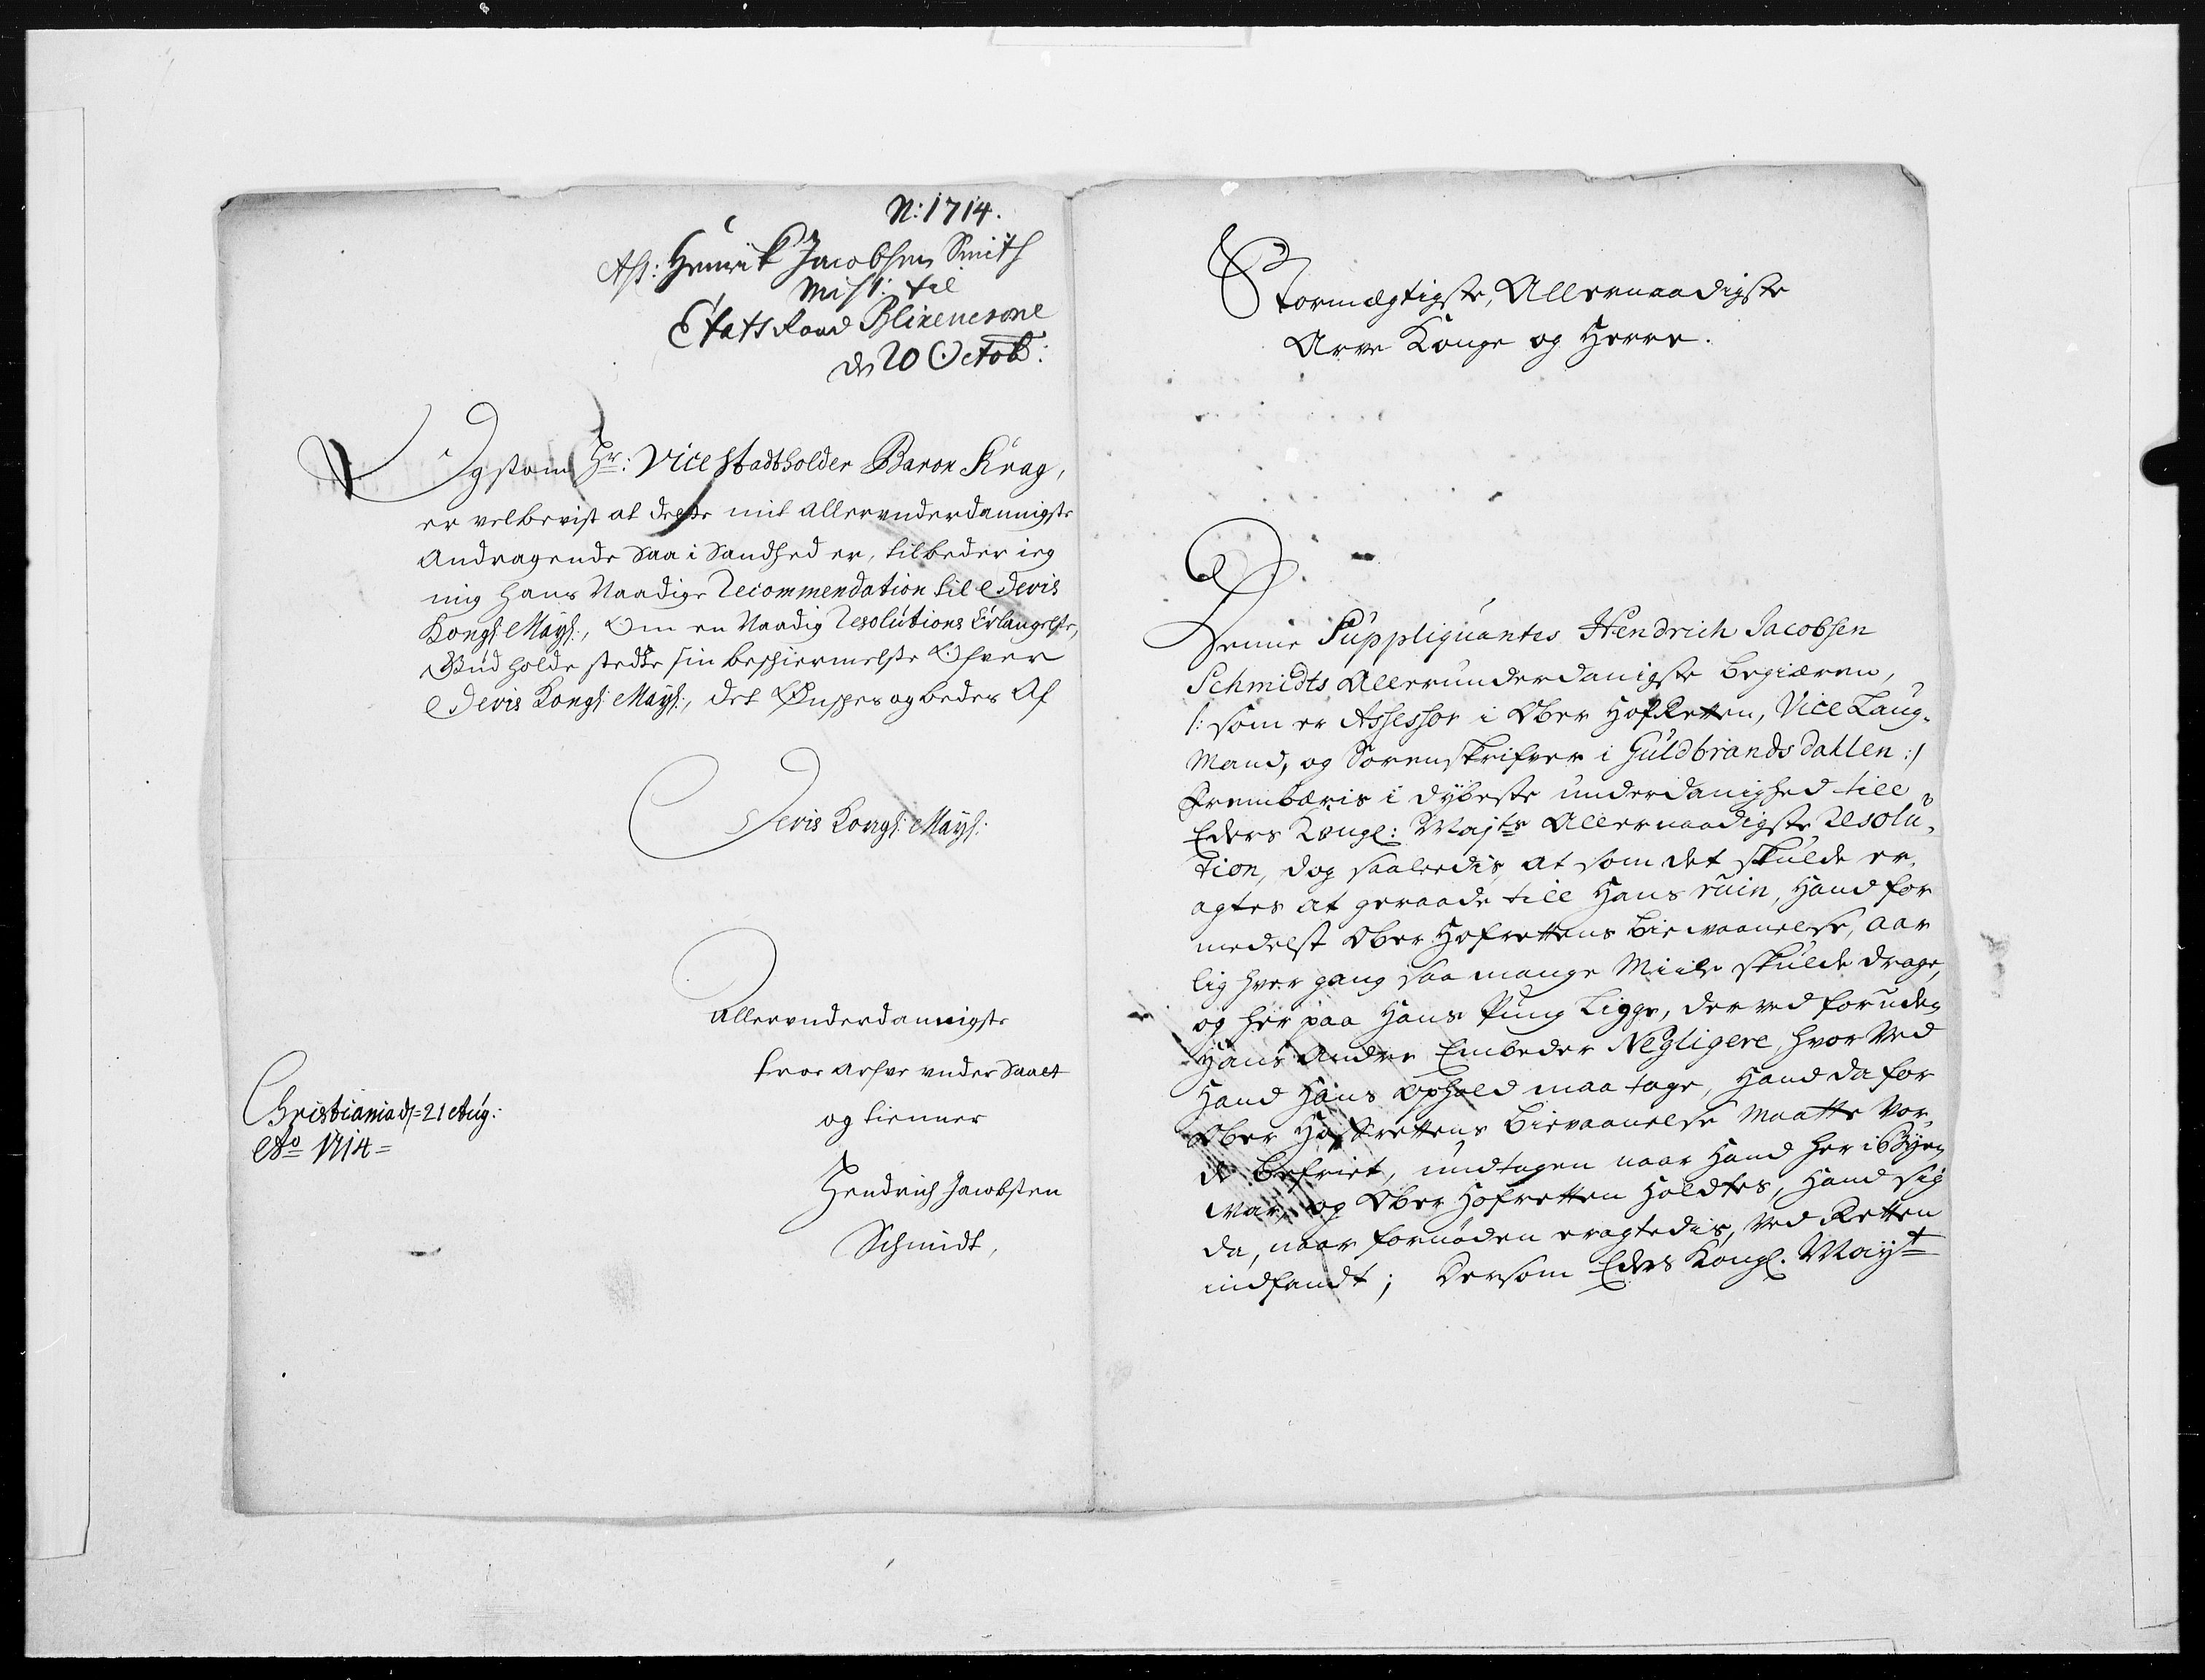 N: 1714.
Ass: Henrik Jacobsen Smith
Miss: til
Etats Raad Blixencrone
d. 20 Octob:
Ligesom Hr: Vice Stadtholder Baron Krag,
er velbevist at dette mit allerunderdannigste
Andragende saa i Sandhed er, tilbeder ieg
mig hans Naadige Recommendation til Deris
Kongl: Mayt:, Om en Naadig Resolutions Erlangelse,
Gud holde stedtze sin beschiermelse Ofver
Deris Kongl: Mayt:, det Ønsches og bedes Af
Deris Kongl: Mayt:
Allerunderdannigste
troe arfve under Saatt
og tienner
Hendrich Jacobsen
Schmidt,
Christiania d: 21 Aug:
Ao 1714=
Stormægtigste, Allernaadigste
Arve Konge og Herre.
Denne Suppliquantes Hendrich Jacobsen
Schmidts Allerunderdanigste begiæren,
/: som er Assessor i Ober HofRetten, Vice Laug-
Mand, og Sorenskrifver i Guldbrandsdahlen :/
Frembæris i dybeste underdanighed till
Eders Kongl: Majts Allernaadigste Resolu-
tion, dog saaledis, at som det skulde er-
agtes at geraade till Hans ruin, Hand for
medelst Ober Hofrettens bievaanelse, aar
lig hver gang saa mange Miile skulde drage,
og her paa Hans Pung Ligge, der ved foruden
Hans Andre Embeder Negligere, hvor Ved
Hand Hans Ophold maa tage, Hand da for
Ober Hofrettens bievaanelse maatte vor-
de befriet, undtagen naar Hand her i Byen
var, og Ober Hofretten Holdtes, Hand sig
da, naar fornøden eragtedis, Ved Retten
indfandt; Dersom Eders Kongl. Mayt